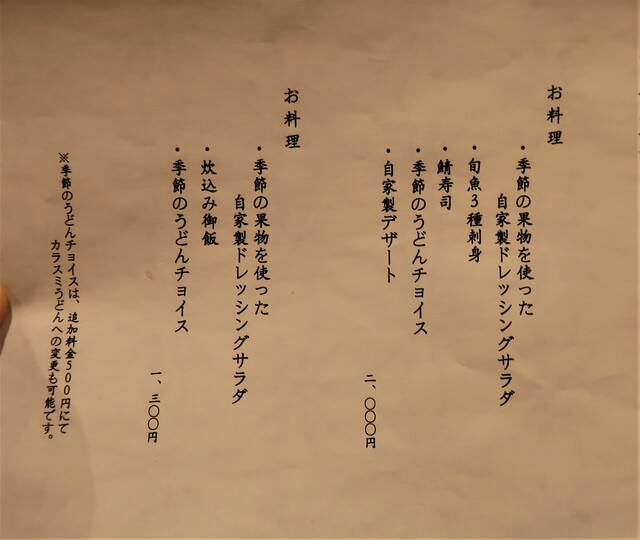 お料理
・季節の果物を使った
自家製ドレッシングサラダ
・旬魚3種刺身
・鯖寿司
・季節のうどんチョイス
・自家製デザート
二、〇〇〇円
お料理
・季節の果物を使った
自家製ドレッシングサラダ
・炊込み御飯
・季節のうどんチョイス
一、三〇〇円
※季節のうどんチョイスは、追加料金500円にて
カラスミうどんへの変更も可能です。